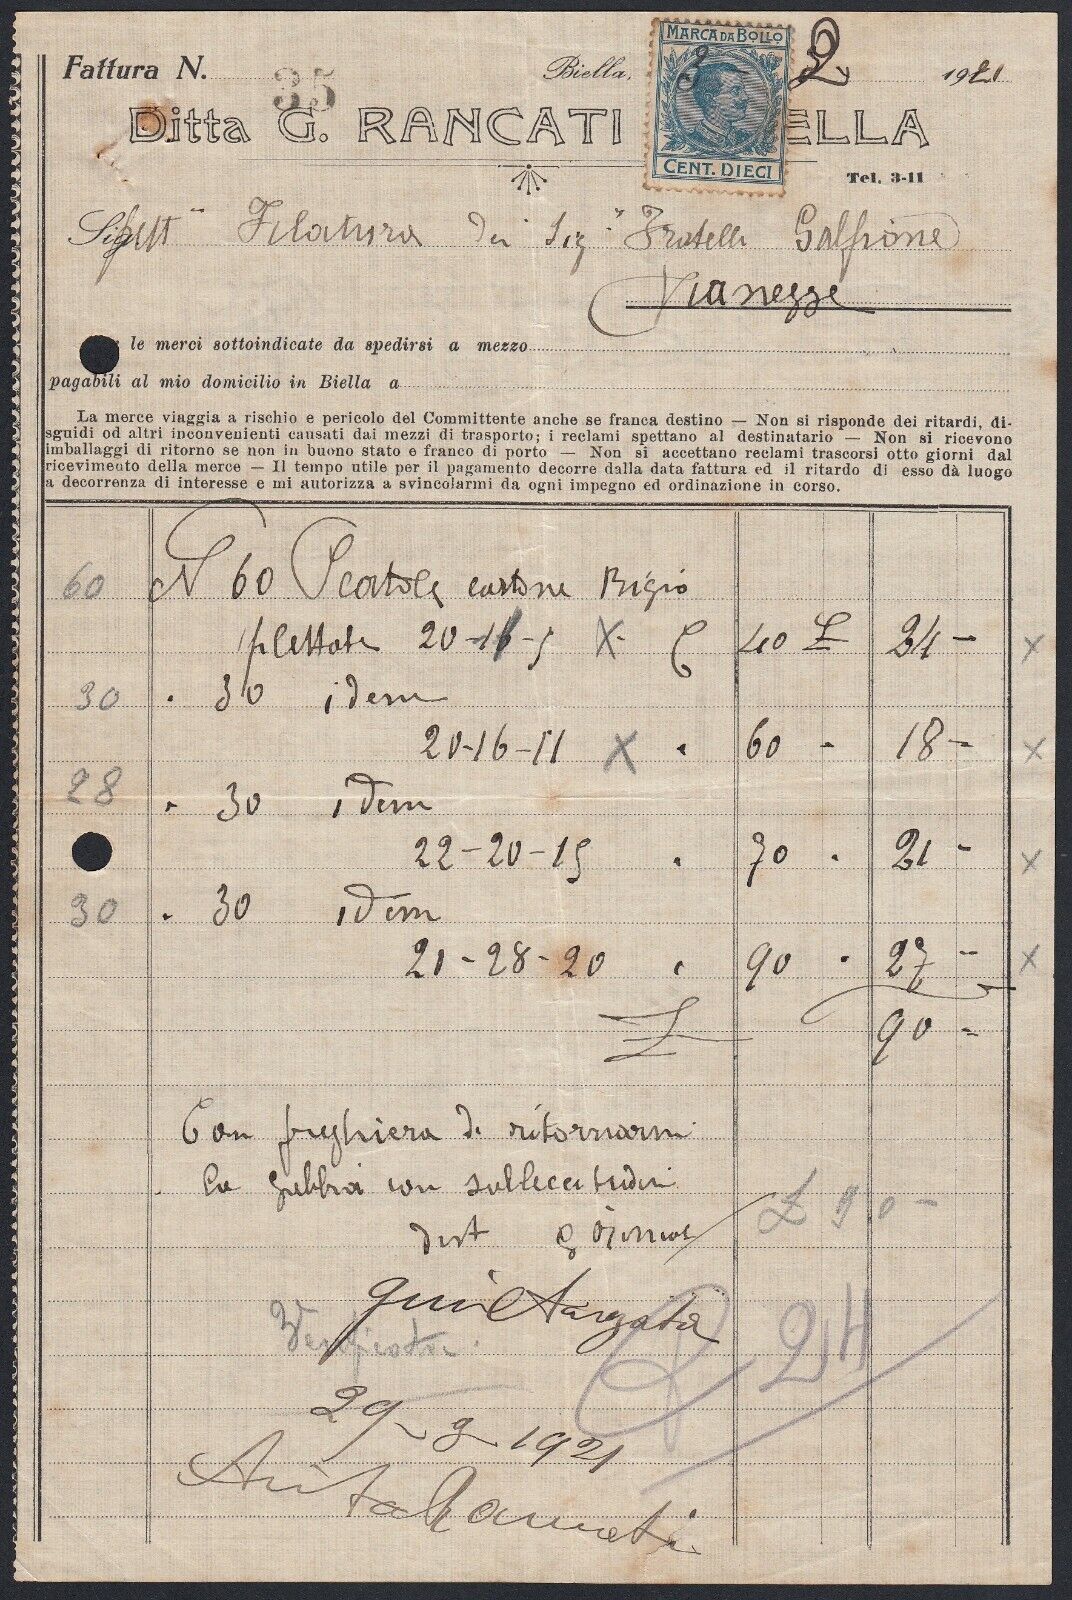 Fattura N. 35
Biella, 3 2 1921
MARCA DA BOLLO
CENT. DIECI
Ditta G. RANCATI ELLA
Tel. 3-11
Filatura dei Sig.ri Fratelli Galfione
Pianezze
le merci sottoindicate da spedirsi a mezzo
pagabili al mio domicilio in Biella a
La merce viaggia a rischio e pericolo del Committente anche se franca destino — Non si risponde dei ritardi, di-
sguidi od altri inconvenienti causati dai mezzi di trasporto; i reclami spettano al destinatario — Non si ricevono
imballaggi di ritorno se non in buono stato e franco di porto — Non si accettano reclami trascorsi otto giorni dal
ricevimento della merce — Il tempo utile per il pagamento decorre dalla data fattura ed il ritardo di esso dà luogo
a decorrenza di interesse e mi autorizza a svincolarmi da ogni impegno ed ordinazione in corso.
60 N 60 Scatole cartone Bigio
20-16-5 X 40 £ 24 - X
30 " 30 idem
20-16-11 X " 60 " 18 - X
28 " 30 idem
22-20-15 " 70 " 21 - X
30 " 30 idem
21-28-20 " 90 " 27 - X
£ 90 -
Con preghiera di ritornarmi
la gabbia con sollecitudine
£ 90 -
quietanzata
Verificata
244
29-3-1921
Anita Rancati